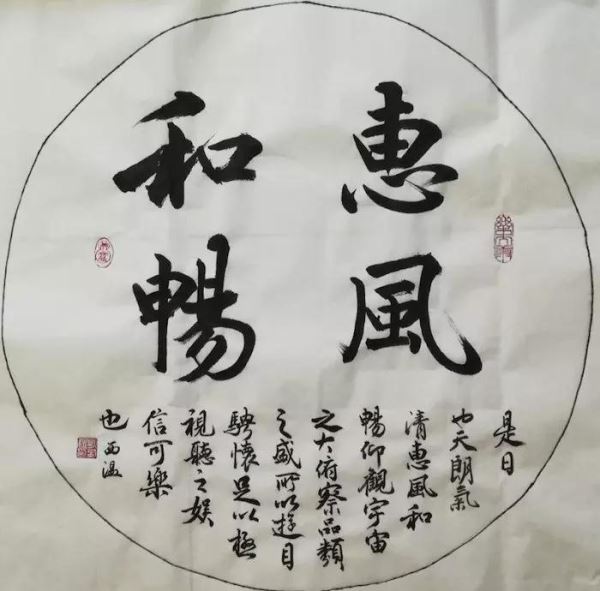 惠風
和暢
是日
也天朗氣
清惠風和
暢仰觀宇宙
之大俯察品類
之盛所以遊目
騁懷足以極
視聽之娛
信可樂
也 西溫